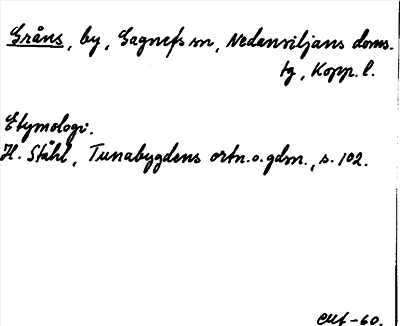 Gråns, by, Gagnefs sn, Nedansiljans doms.
tg, Kopp. l.
Etymologi.
H. Ståhl, Tunabygdens ortn. o. gdn., s. 102.
-60.